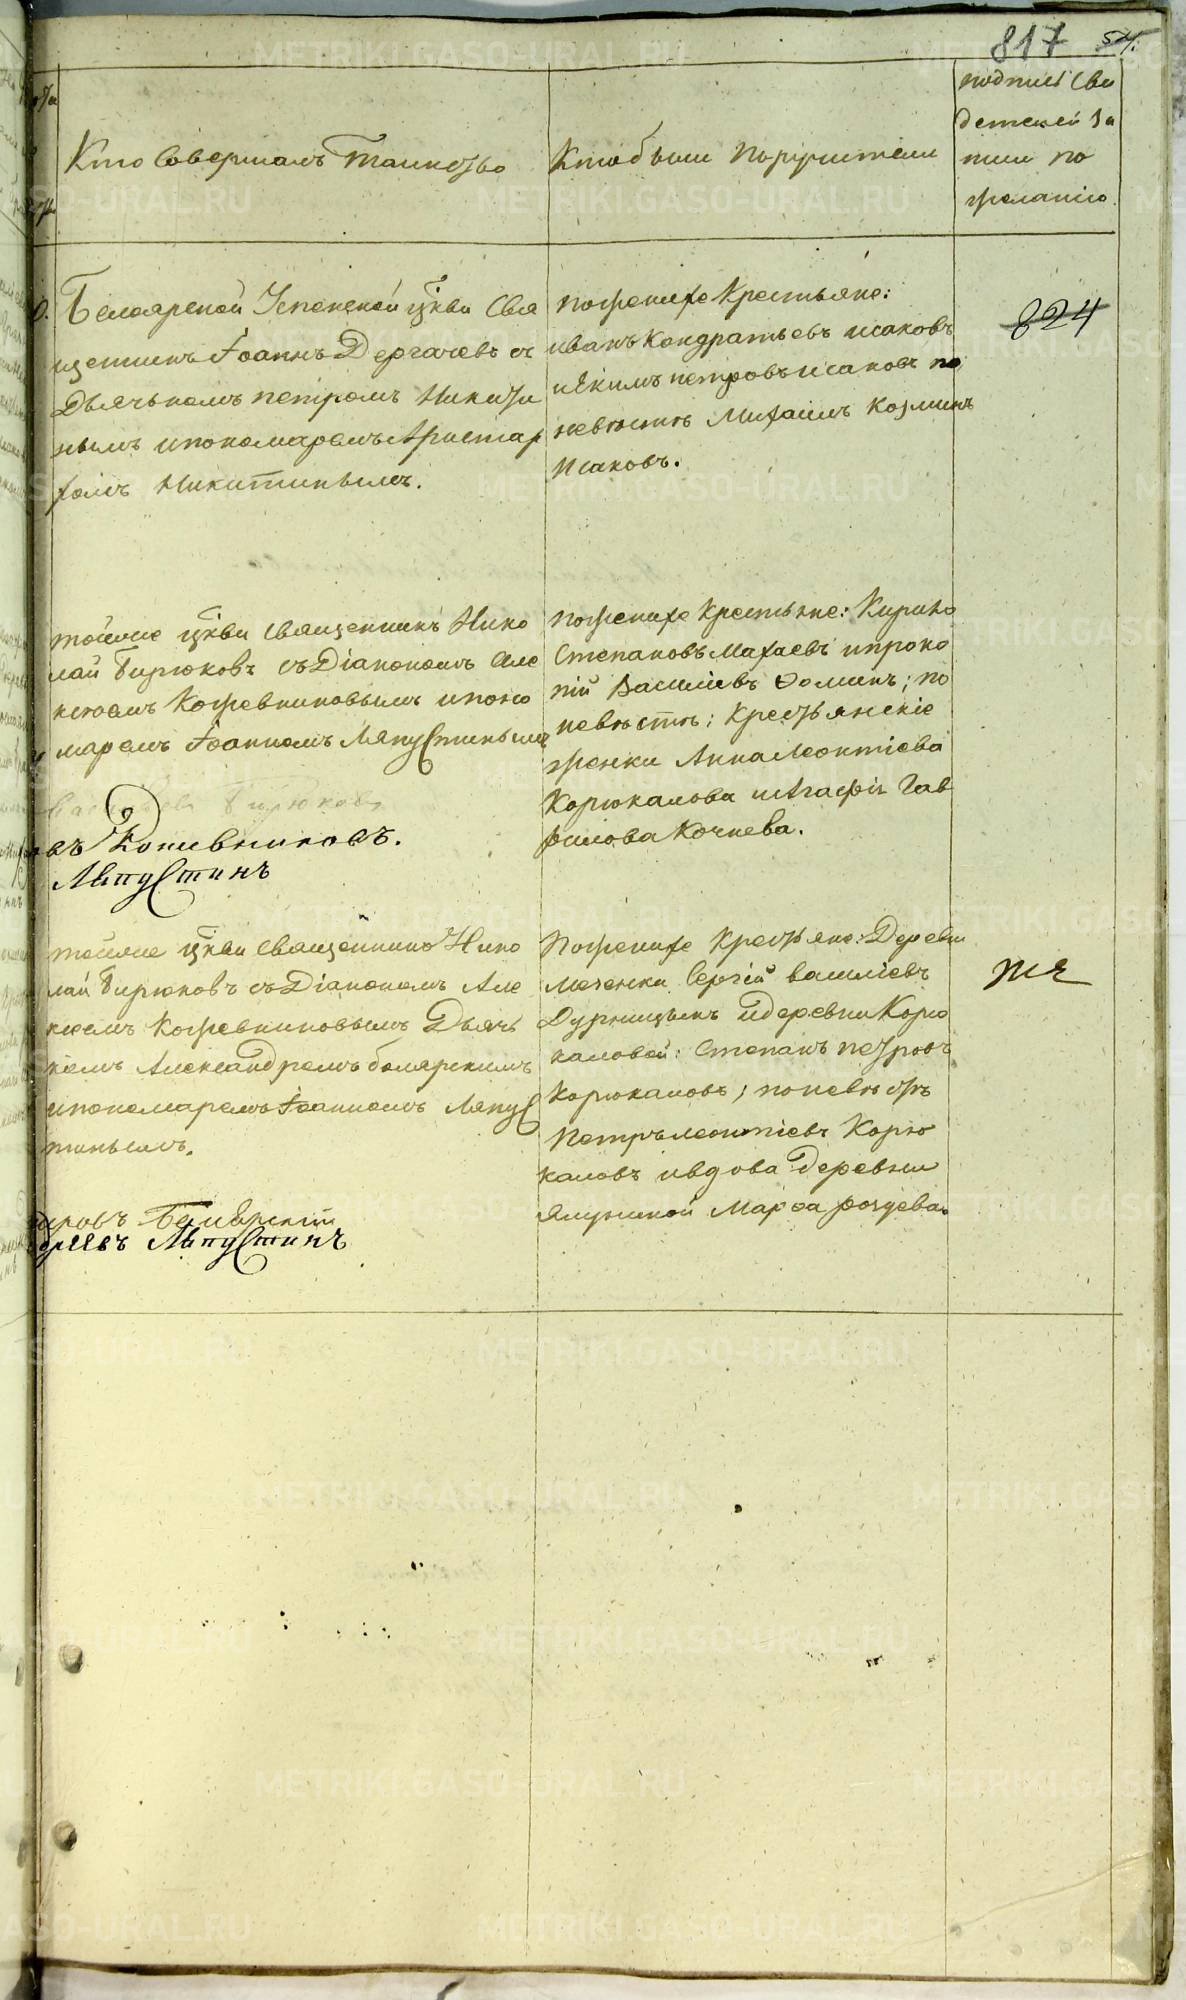 817
54.
Кто Совершалъ Таинство
Кто были Поручители
подписъ Сви
детелей За
писи по
желанію
Белоярской Успенской цркви Свя
щенникъ Іоаннъ Дергачевъ съ
Дьячькомъ петромъ Никити
нымъ и пономаремъ Аристар
хомъ Никитинымъ.
пожених Крестьяне:
иванъ Кондратьевъ исаковъ
и Якимъ петровъ исаковъ по
невѣстѣ Михаилъ Козминъ
Исаковъ.
824
тойже цркви священникъ Нико
лай Бирюковъ съ Діакономъ Але
ксеемъ Кожевниковымъ и поно
маремъ Іоанномъ Ляпустинымъ
Бирюковъ
въ Кожевниковъ.
Ляпустинъ
пожених Крестьяне: Кирило
Степановъ Махаевъ и проко
пій Василіевъ Ѳоминъ; по
невѣстѣ: Крестьянскіе
женки Анна Леонтіева
Корюкалова и Агафія Гав
рилова Кочнева.
тойже цркви священникъ Нико
лай Бирюковъ съ Діакономъ Але
ксеемъ Кожевниковымъ Дьячь
комъ Александромъ болярскимъ
и пономаремъ Іоанномъ Ляпус
тинымъ.
Белярскій
Ляпустинъ
Пожених Крестьяне: Деревни
меченки Сергій василіевъ
Дурницынъ и деревни Корю
каловой: Степанъ петровъ
Корюкаловъ; по невѣстѣ
Петръ леонтіевъ Корю
каловъ и вдова деревни
Ялуниной Марѳа
METRIKI.GASO-URAL.RU